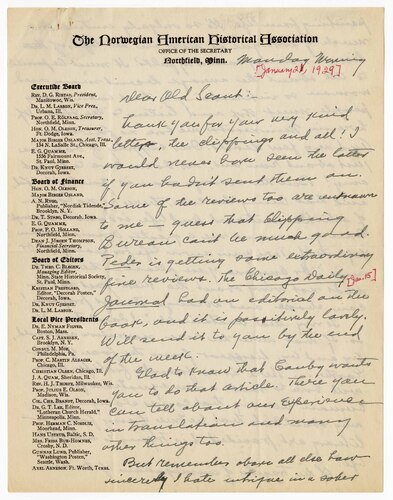 The Norwegian American Historical Association
OFFICE OF THE SECRETARY
Northfield, Minn.
Monday Morning
[January 21, 1929]
Executive Board
REV. D. G. RISTAD, President,
Manitowoc, Wis.
DR. L. M. LARSON, Vice Pres.,
Urbana, Ill.
PROF. O. E. RÖLVAAG, Secretary,
Northfield, Minn.
HON. O. M. OLESON, Treasurer,
Ft. Dodge, Iowa.
MAJOR BIRGER OSLAND, Asst. Treas.,
134 N. LaSalle St., Chicago, Ill.
E. G. QUAMME,
1536 Fairmount Ave.,
St. Paul, Minn.
DR. KNUT GJERSET,
Decorah, Iowa.
Board of Finance
HON. O. M. OLESON,
MAJOR BIRGER OSLAND,
A. N. RYGG,
Publisher, "Nordisk Tidende,"
Brooklyn, N. Y.
DR. T. STABO, Decorah, Iowa.
E. G. QUAMME,
PROF. P. O. HOLLAND,
Northfield, Minn.
DEAN J. JÖRGEN THOMPSON,
Financial Secretary,
Northfield, Minn.
Board of Editors
DR. THEO. C. BLEGEN,
Managing Editor,
Minn. State Historical Society,
St. Paul, Minn.
KRISTIAN PRESTGARD,
Editor, "Decorah Posten,"
Decorah, Iowa.
DR. KNUT GJERSET,
DR. L. M. LARSON.
Local Vice Presidents
DR. E. NYMAN FIGVED,
Boston, Mass.
CAPT. S. J. ARNESEN,
Brooklyn, N. Y.
CONSUL M. MOE,
Philadelphia, Pa.
PROF. C. MARTIN ALSAGER,
Chicago, Ill.
CHRISTIAN OLSEN, Chicago, Ill.
J. A. QUAM, Sheridan, Ill.
REV. H. J. THORPE, Milwaukee, Wis.
PROF. JULIUS E. OLSON,
Madison, Wis.
CHR. BRANDT, Decorah, Iowa.
DR. G. T. LEE, Editor,
"Lutheran Church Herald,"
Minneapolis, Minn.
PROF. HERMAN C. NORDLIE,
Moorhead, Minn.
HANS USTRUD, Baltic, S. D.
MRS.
Crosby, N. D.
GUNNAR LUND, Publisher,
"Washington Posten,"
Seattle, Wash.
AXEL ARNESON, Ft. Worth, Texas.
Dear Old Scout:
Thank you for your very kind
letter, the clippings and all! I
would never have seen the latter
if you hadn't sent them on.
Some of the reviews too are unknown
to me – guess that Clipping
Bureau can't be much good.
Peder is getting some extraordinary
fine reviews. The Chicago Daily [Jan. 15]
Journal had an editorial on the
book, and it is positively lovely.
Will send it to you by the end
of the week.
Glad to know that Canby wants
you to do that article. There you
can tell about our experience
in translations and many
other things too.
But remember above all else how
sincerely I hate intrigue in a sober